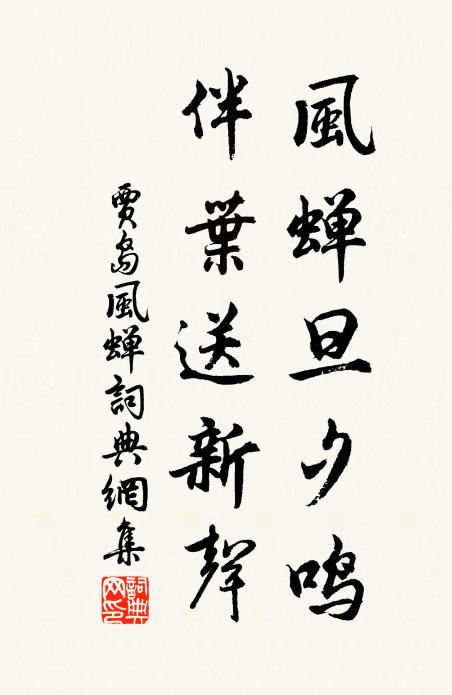 風蝉旦夕鸣
伴葉送新聲
賈島風蝉詞典網集
詞典
网印